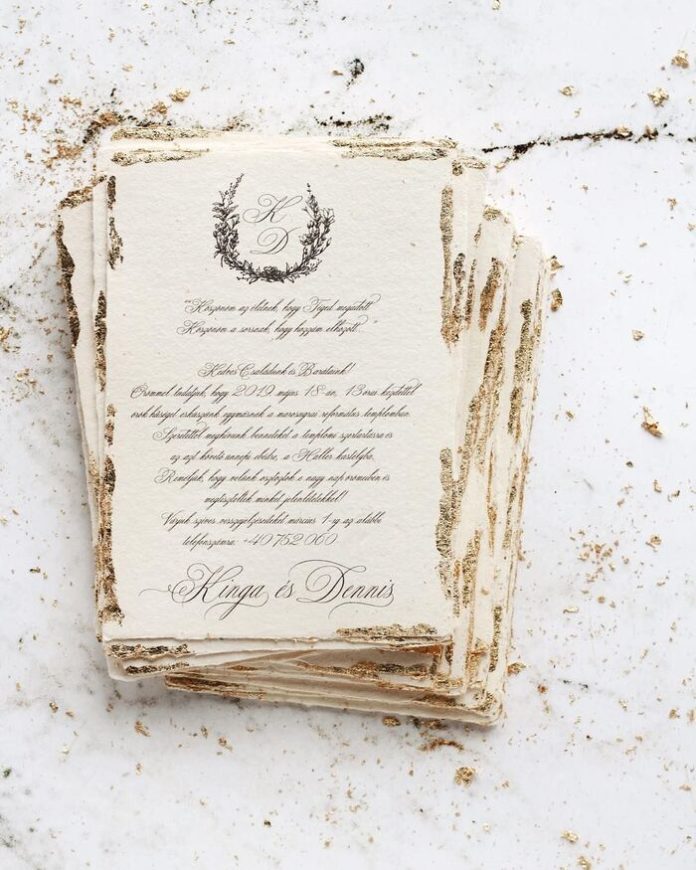 K
D
"Köszönöm az életnek, hogy Téged megadott
Köszönöm a sorsnak, hogy hozzám elhozott..."
Kedves Családunk és Barátaink!
Örömmel tudatjuk, hogy 2019 május 18-án, 13 órai kezdettel
örök hűséget esküszünk egymásnak a marosugrai református templomban.
Szeretettel meghívunk benneteket a templomi szertartásra és
az azt követő ünnepi ebédre, a Haller kastélyba.
Reméljük, hogy velünk osztoztok a nagy nap örömeiben és
megtiszteltek minket jelenlétetekkel!
Várjuk szíves visszajelzéseteket március 1-ig az alábbi
telefonszámra: +40 752 060
Kinga és Dennis